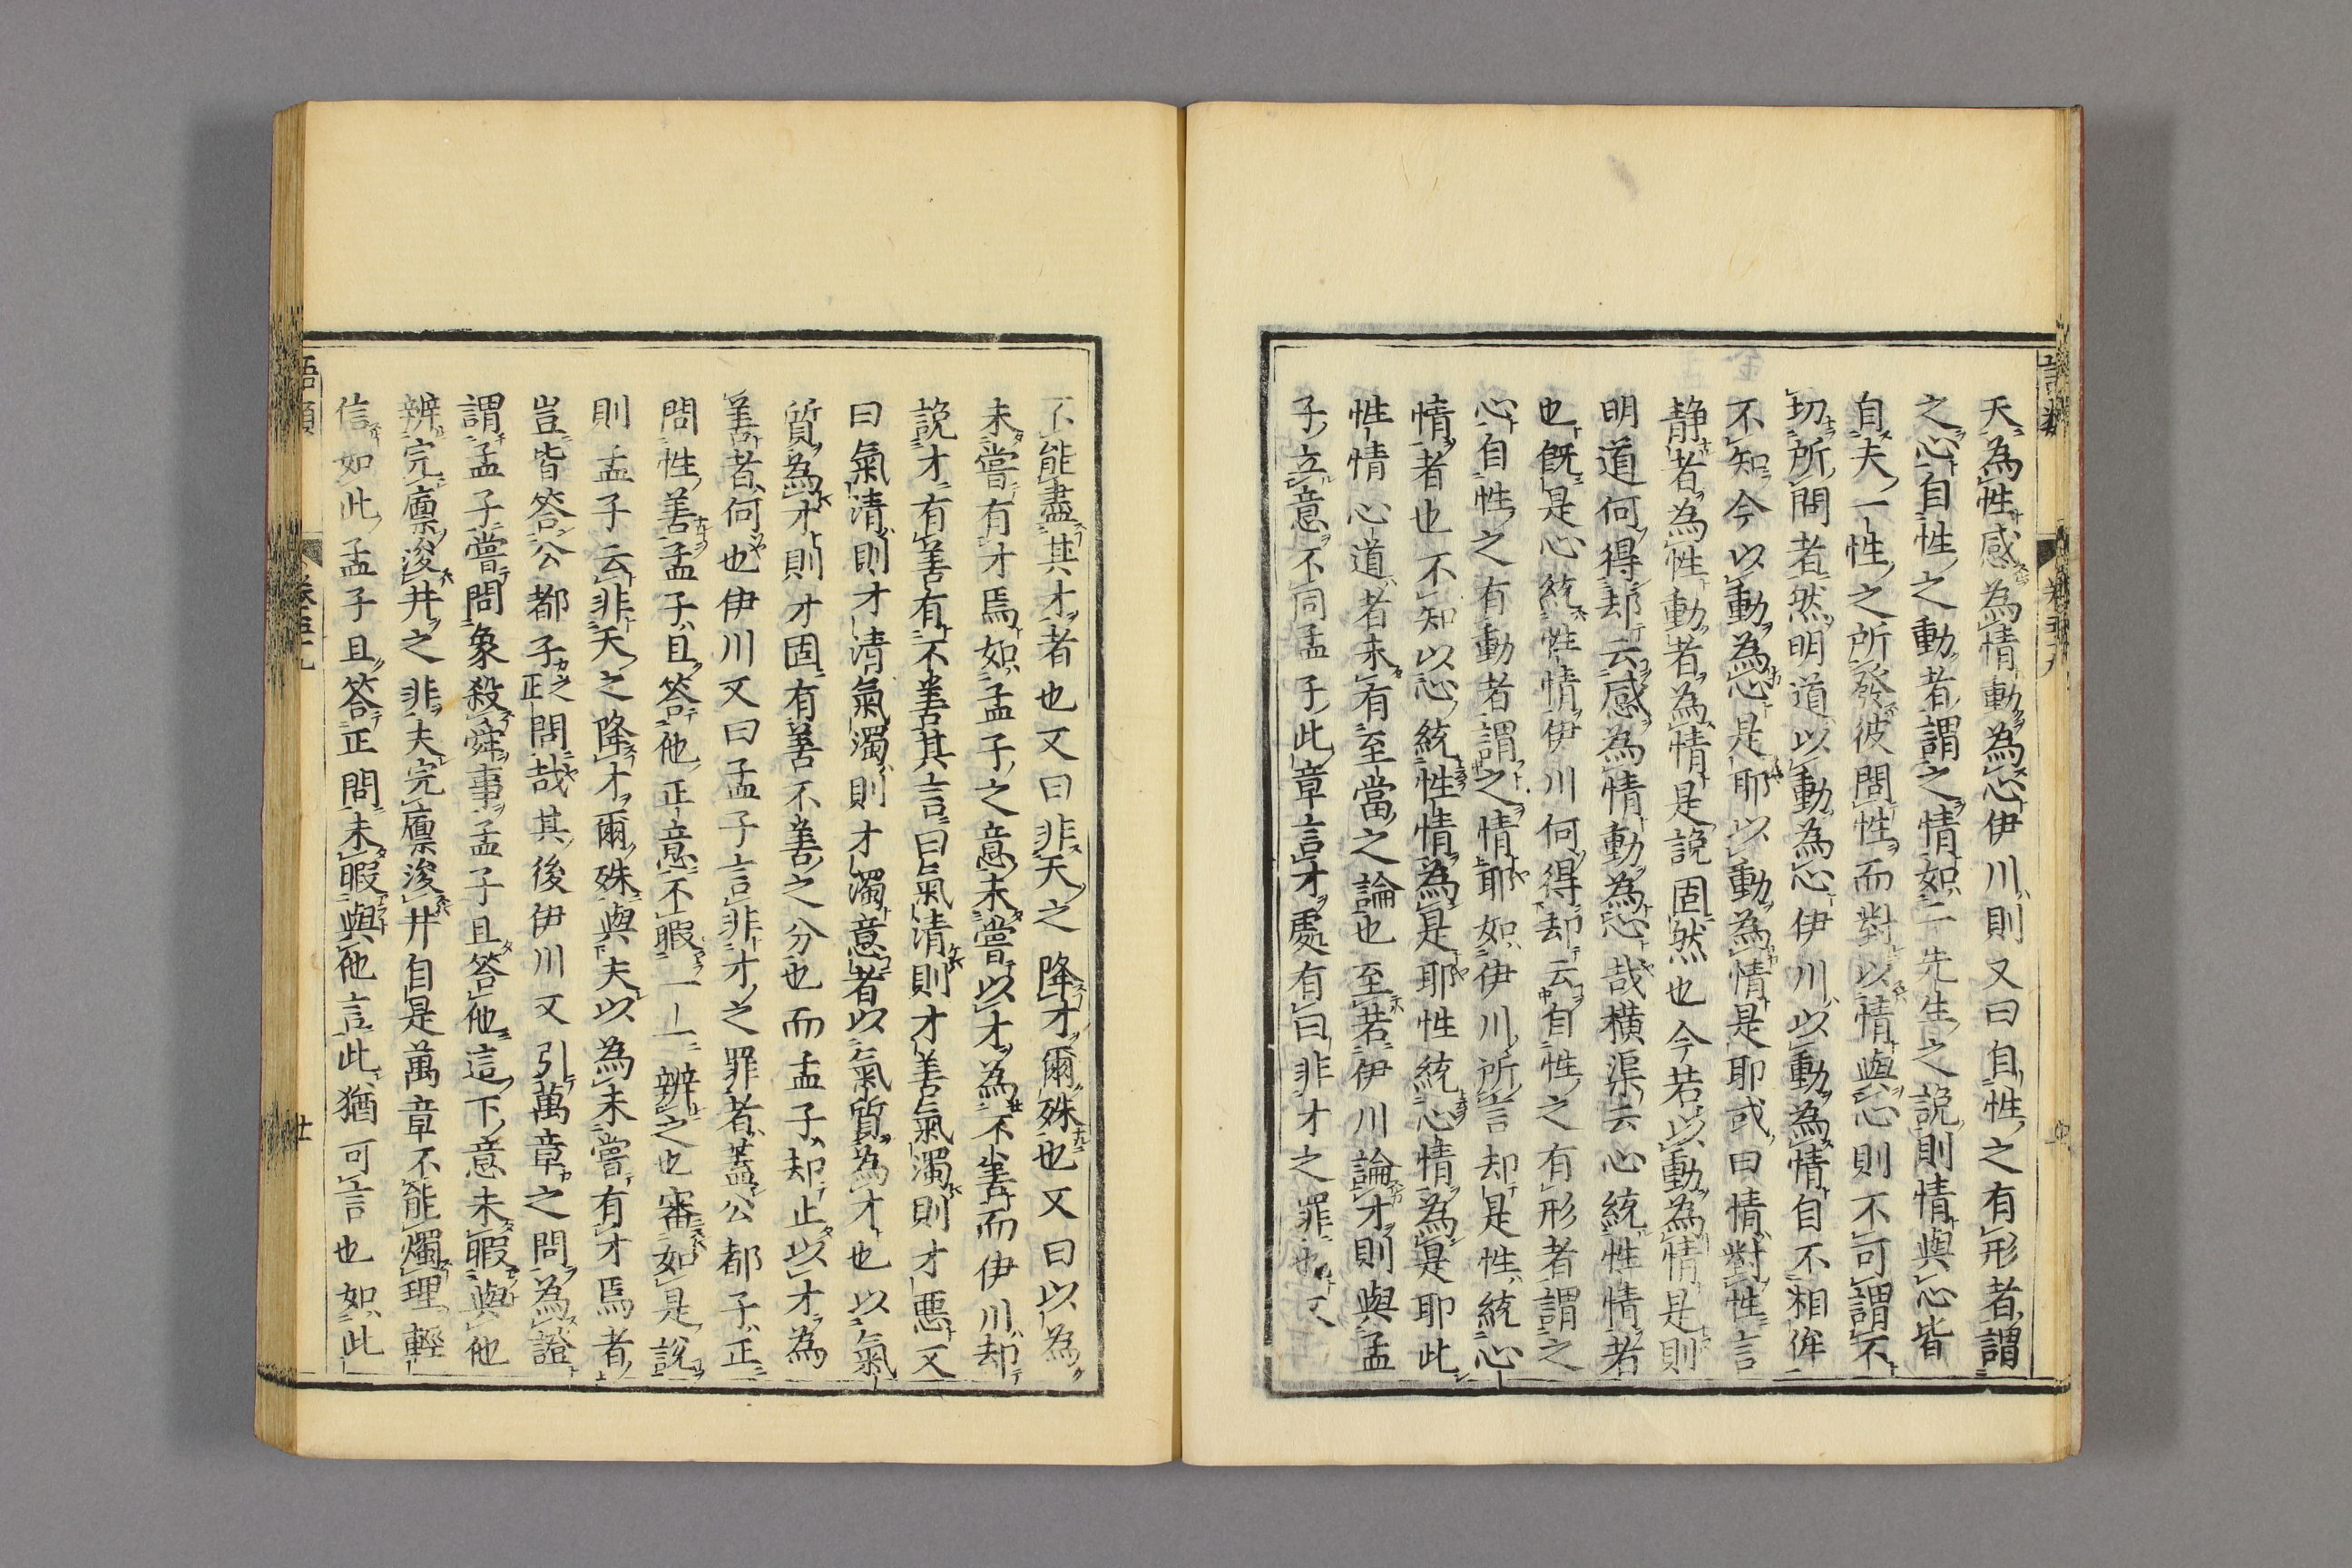 天為性感為情動為心伊川則又曰自性之有形者謂
之心自性之動者謂之情如二先生之說則情與心皆
自夫一性之所發彼問性而對以情與心則不可謂不
切所問者然明道以動為心伊川以動為情自不相侔
不知今以動為心是耶以動為情是耶或曰情對性言
静者為性動者為情是說固然也今若以動為情是則
明道何得却云感為情動為心哉横渠云心統性情者
也既是心統性情伊川何得却云自性之有形者謂之
心自性之有動者謂之情耶如伊川所言却是性統心
情者也不知以心統性情為是耶性統心情為是耶此
性情心道者未有至當之論也至若伊川論才則與孟
子立意不同孟子此章言才處有曰非才之罪也又
不能盡其才者也又曰非天之降才爾殊也又曰以為
未嘗有才焉如孟子之意未嘗以才為不善而伊川却
說才有善有不善其言曰氣清則才善氣濁則才惡又
曰氣清則才清氣濁則才濁意者以氣質為才也以氣
質為才則才固有善不善之分也而孟子却止以才為
善者何也伊川又曰孟子言非才之罪者蓋公都子正
問性善孟子且答他正意不暇一一辨之也審如是說
則孟子云非天之降才爾殊與夫以為未嘗有才焉者
豈皆答公都子之正問哉其後伊川又引萬章之問為證
謂孟子嘗問象殺舜事孟子且答他這下意未暇與他
辨完廪浚井之非夫完廪浚井自是萬章不能燭理輕
信如此孟子且答正問未暇與他言此猶可言也如此
語類 卷五十九 廿